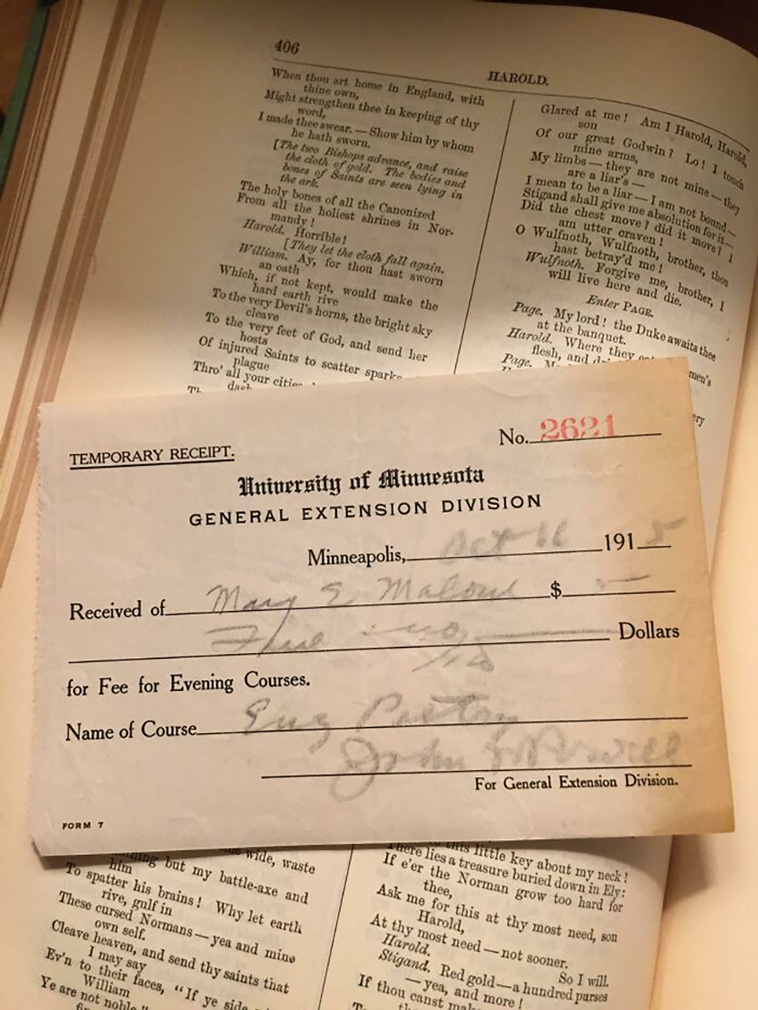 406
HAROLD.
When thou art home in England, with
thine own,
Might strengthen thee in keeping of thy
word,
I made thee swear. — Show him by whom
he hath sworn.
[The two Bishops advance, and raise
the cloth of gold. The bodies and
bones of Saints are seen lying in
the ark.
The holy bones of all the Canonized
From all the holiest shrines in Nor-
mandy!
Harold. Horrible!
[They let the cloth fall again.
William. Ay, for thou hast sworn
an oath
Which, if not kept, would make the
hard earth rive
To the very Devil's horns, the bright sky
cleave
To the very feet of God, and send her
hosts
Of injured Saints to scatter sparks
plague
Thro' all your cities
dash
Glared at me! Am I Harold, Harold,
son
Of our great Godwin? Lo! I touch
mine arms,
My limbs — they are not mine — they
are a liar's —
I mean to be a liar — I am not bound —
Stigand shall give me absolution for it —
Did the chest move? did it move? I
am utter craven!
O Wulfnoth, Wulfnoth, brother, thou
hast betray'd me!
Wulfnoth. Forgive me, brother, I
will live here and die.
Enter PAGE.
Page. My lord! the Duke awaits thee
at the banquet.
Harold. Where they men's
flesh, and
Page.
TEMPORARY RECEIPT.
No. 2621
University of Minnesota
GENERAL EXTENSION DIVISION
Minneapolis, Oct 1915
Received of Mary E Malone $
Five no Dollars
for Fee for Evening Courses.
Name of Course Eng Poetry
John Powell
For General Extension Division.
FORM 7
wide, waste
but my battle-axe and
him
To spatter his brains! Why let earth
rive, gulf in
These cursed Normans — yea and mine
own self.
Cleave heaven, and send thy saints that
I may say
Ev'n to their faces, "If ye side
William
Ye are not noble."
this little key about my neck!
There lies a treasure buried down in Ely:
If e'er the Norman grow too hard for
thee,
Ask me for this at thy most need, son
Harold,
At thy most need — not sooner.
Harold. So I will.
Stigand. Red gold — a hundred purses
— yea, and more!
If thou canst make